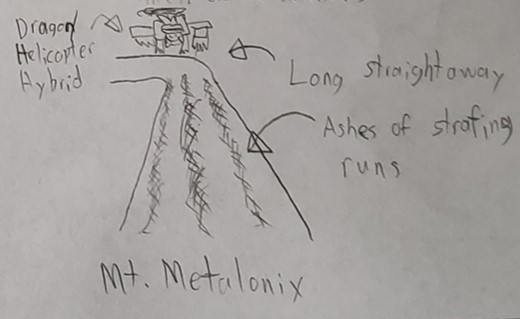 Dragon
Helicopter
Hybrid
Long straightaway
Ashes of strafing
runs
Mt. Metalonix